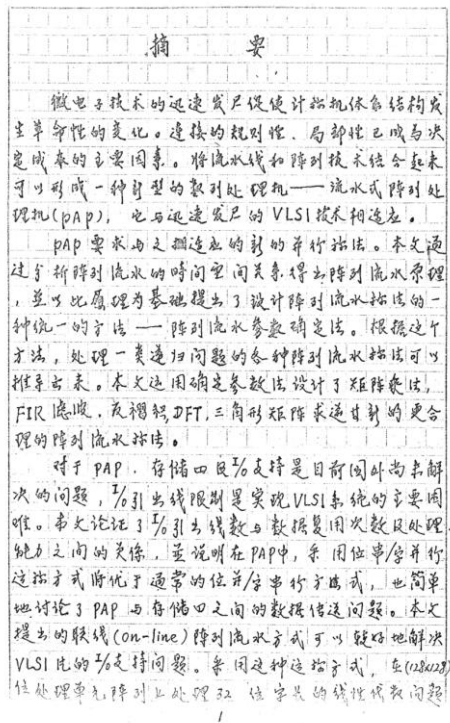 摘 要
微电子技术的迅速发尸促使计祘机体系结构发
生革命性的变化。连接的规则性、局部性已成为决
定成本的主要因素。将流水线和阵列技术结合起来
可以形成一种新型的数列处理机——流水式阵列处
理机(PAP),它与迅速发尸的VLSI技术相适应。
PAP要求与之相适应的新的并行祘法。本文通
过分析阵列流水的时间空间关系,得出阵列流水原理
,並以此原理为基础提出了设计阵列流水祘法的一
种统一的方法——阵列流水参数确定法。根据这个
方法,处理一类递归问题的各种阵列流水祘法可以
推导出来。本文运用确定参数法设计了矩阵乘法,
FIR滤波,反褶积,DFT,三角形矩阵求逆等新的更合
理的阵列流水祘法。
对于PAP,存储四及I/O支持是目前国外尚未解
决的问题,I/O引出线限制是实现VLSI系统的主要困
难。本文论证了I/O引出线数与数据复用次数及处理
能力之间的关系,並说明在PAP中,采用位串/字并行
运祘方式将优于通常的位并/字串行方式,也简单
地讨论了PAP与存储四之间的数据传送问题。本文
提出的联线(on-line)阵列流水方式可以较好地解决
VLSI片的I/O支持问题。采用这种运祘方式,在(128x128)
位处理单元阵列上处理32位字长的线性代数问题
1